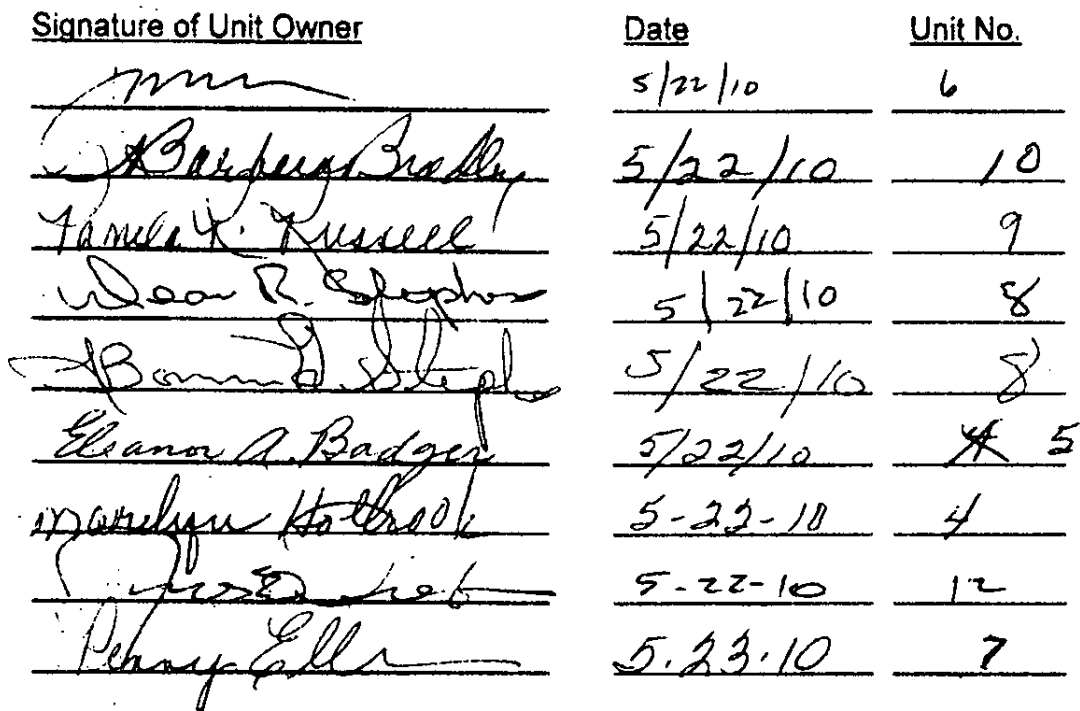 Signature of Unit Owner Date Unit No.
5/22/10 6
Barbara Bradley 5/22/10 10
Pamela K. Russell 5/22/10 9
Dean R. Stephens 5/22/10 8
Bonnie Stephens 5/22/10 8
Eleanor A. Badger 5/22/10 5
Marilyn Holbrook 5-22-10 4
5-22-10 12
Penny Ells 5.23.10 7